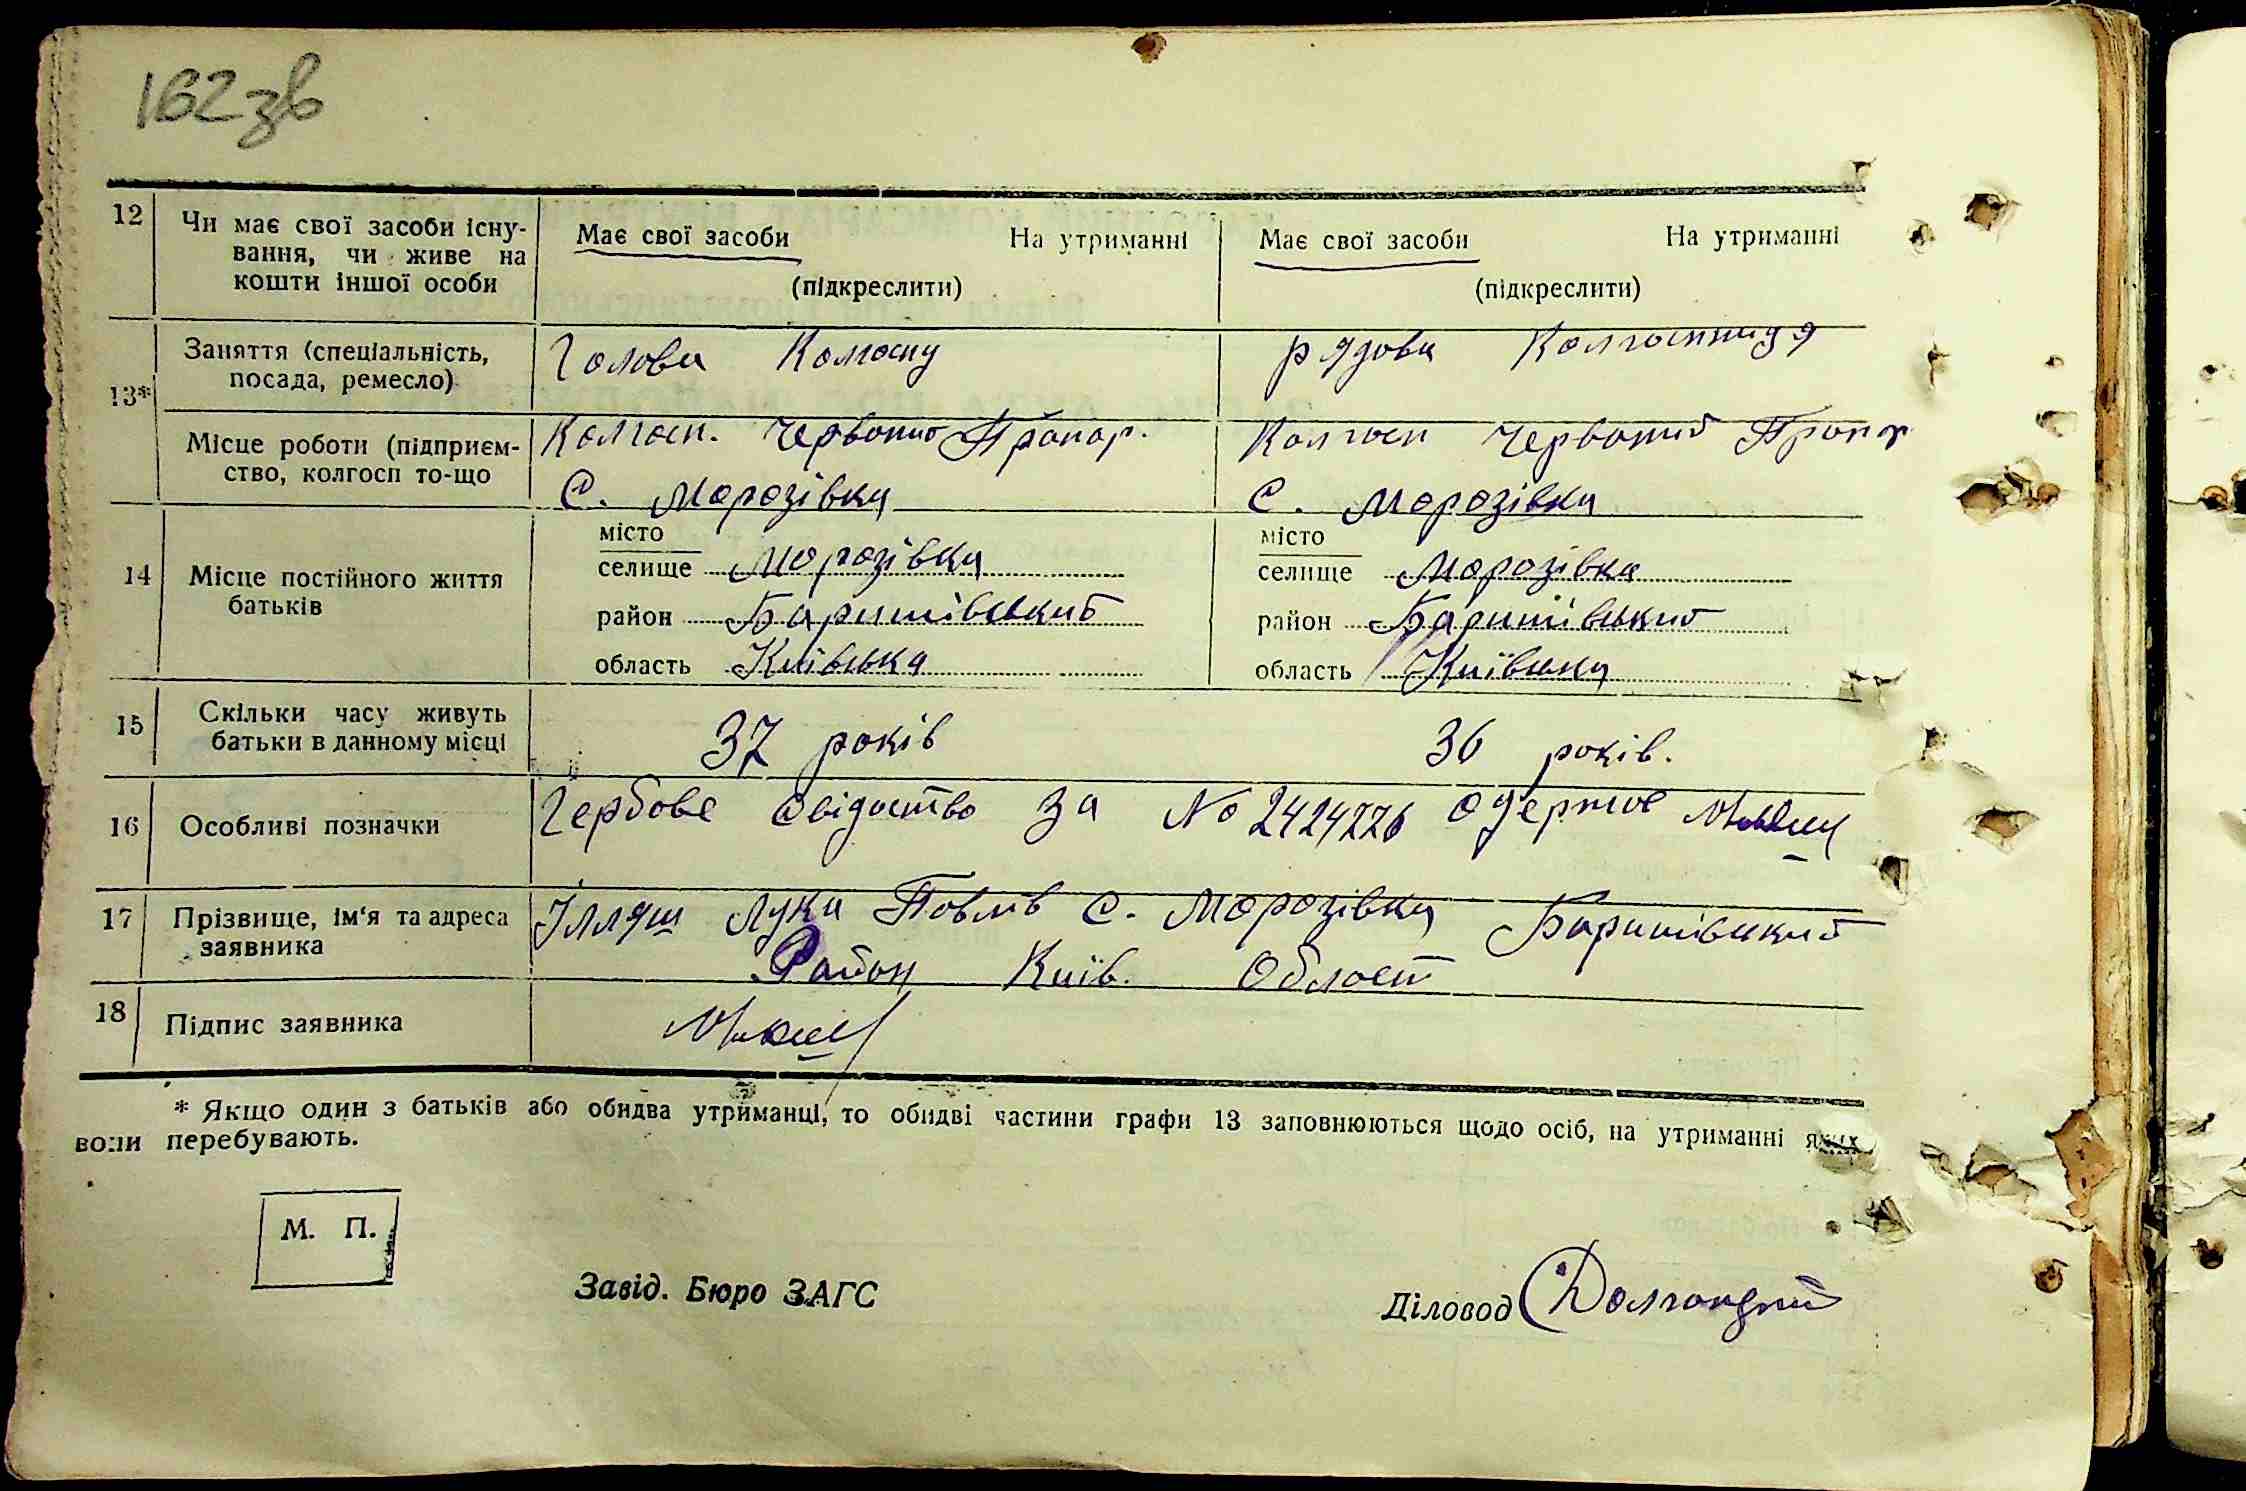 162зв
12 Чи має свої засоби існу- Має свої засоби На утриманні Має свої засоби На утриманні
вання, чи живе на
кошти іншої особи (підкреслити) (підкреслити)
13* Заняття (спеціальність, Голова Колгоспу рядова Колгоспниця
посада, ремесло)
Місце роботи (підприєм- Колгосп. Червоний Прапор. Колгосп Червоний Прапор
ство, колгосп то-що С. Морозівка С. Морозівка
14 Місце постійного життя місто місто
батьків селище Морозівка селище Морозівка
район Баришівський район Баришівський
область Київська область Київська
15 Скільки часу живуть 37 років 36 років.
батьки в данному місці
16 Особливі позначки Гербове свідоство За № 2424226 одержив
17 Прізвище, ім'я та адреса Ілляш Лука Павлів С. Морозівка Баришівський
заявника Район Київ. Област
18 Підпис заявника
* Якщо один з батьків або обидва утриманці, то обидві частини графи 13 заповнюються щодо осіб, на утриманні яких
вони перебувають.
М. П.
Завід. Бюро ЗАГС Діловод